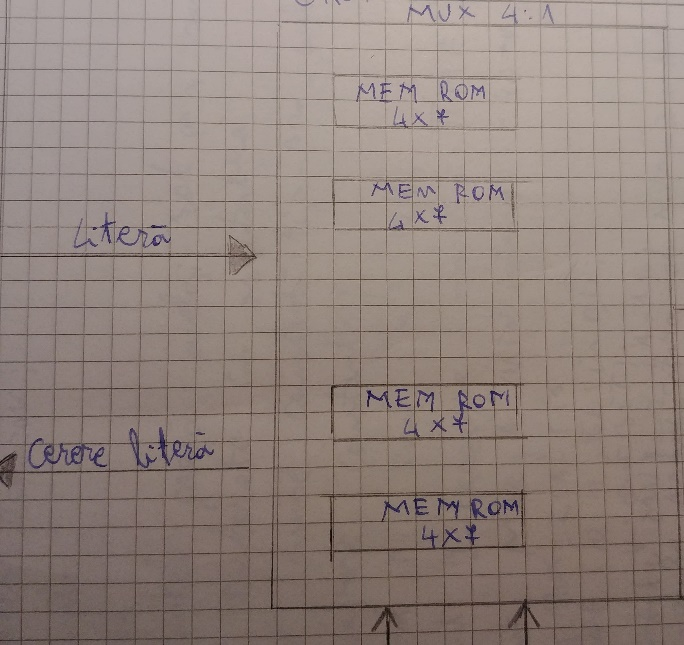 MUX 4:1
MEM ROM
4x7
MEM ROM
4x7
Literă
MEM ROM
4x7
Cerere literă
MEM ROM
4x7